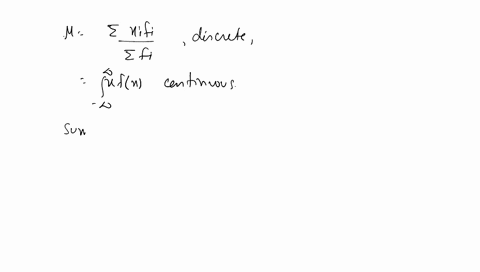 M = Σ xifi / Σ fi , discrete,
= ∫_{-∞}^{∞} x f(x) continuous.
Sum